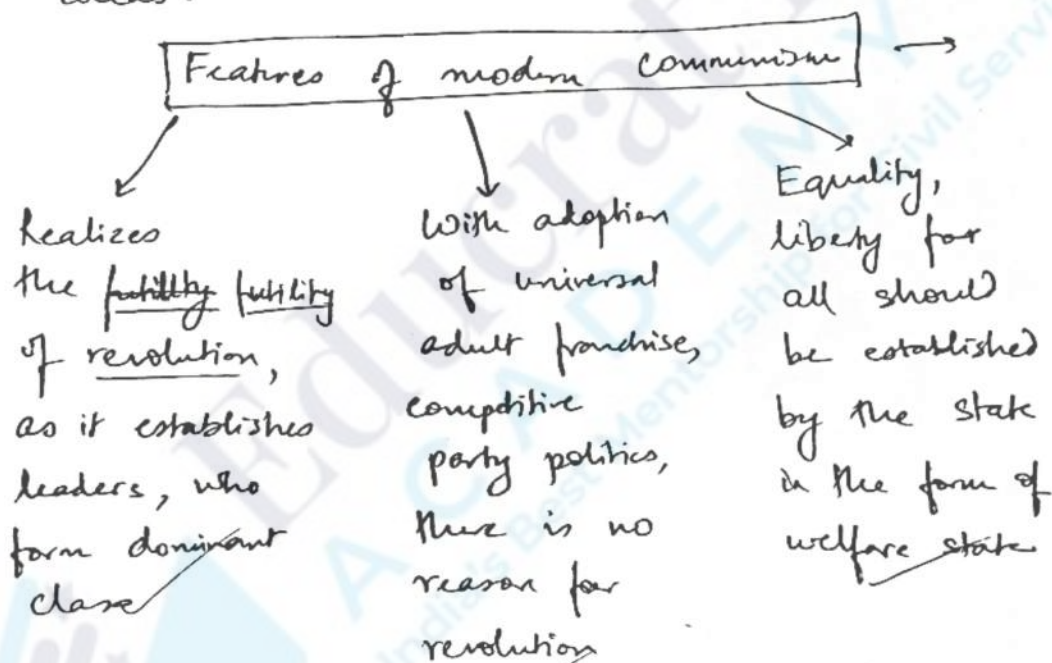 Features of modern communism
Realizes
the futillty futility
of revolution,
as it establishes
leaders, who
form dominant
class
With adoption
of universal
adult franchise,
competitive
party politics,
there is no
reason for
revolution
Equality,
liberty for
all should
be established
by the state
in the form of
welfare state
Educrat
ACADEMY
India's Best Mentorship for Civil Servi